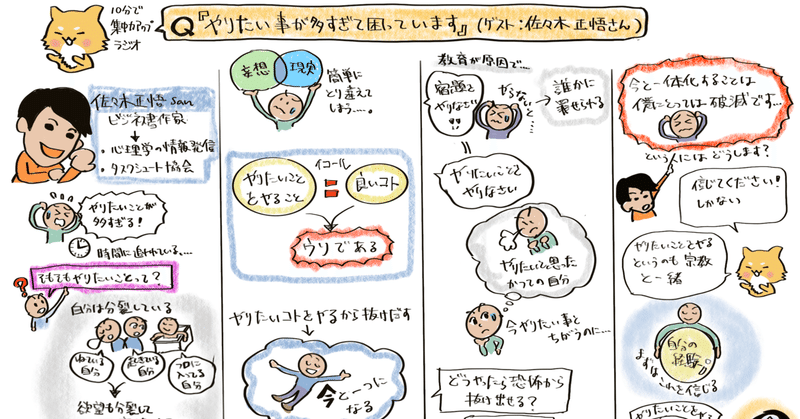 10分で
集中力アップ
ラジオ
Q『やりたい事が多すぎて困っています』(ゲスト:佐々木正悟さん)
佐々木正悟san
ビジネス書作家
・心理学の情報発信
・タスクシュート協会
やりたいことが
多すぎる!
時間に追われている、…
そもそもやりたいことって?
自分は分裂している
ねている
自分
起きている
自分
フロに
入ってる
自分
欲望も分裂して
妄想
現実
簡単に
とり違えて
しまう…。
やりたいこと
をやること
イコール
良いコト
ウソである
やりたいコトをやるから抜けだす
今と一つに
なる
教育が原因で…
宿題を
やりなさい
!!!
やらない
と…
誰かに
罵せられる
やりたいことを
やりなさい
やりたいと思った
かつての自分
今やりたい事と
ちがうのに…
どうやったら恐怖から
抜け出せる?
今と一体化することは
僕にとっては破滅です…
という人にはどうします?
信じてください!
しかない
やりたいことをやる
というのも宗教
と一緒
自分の
経験
まずはこれを信じる
やりたいことをやる